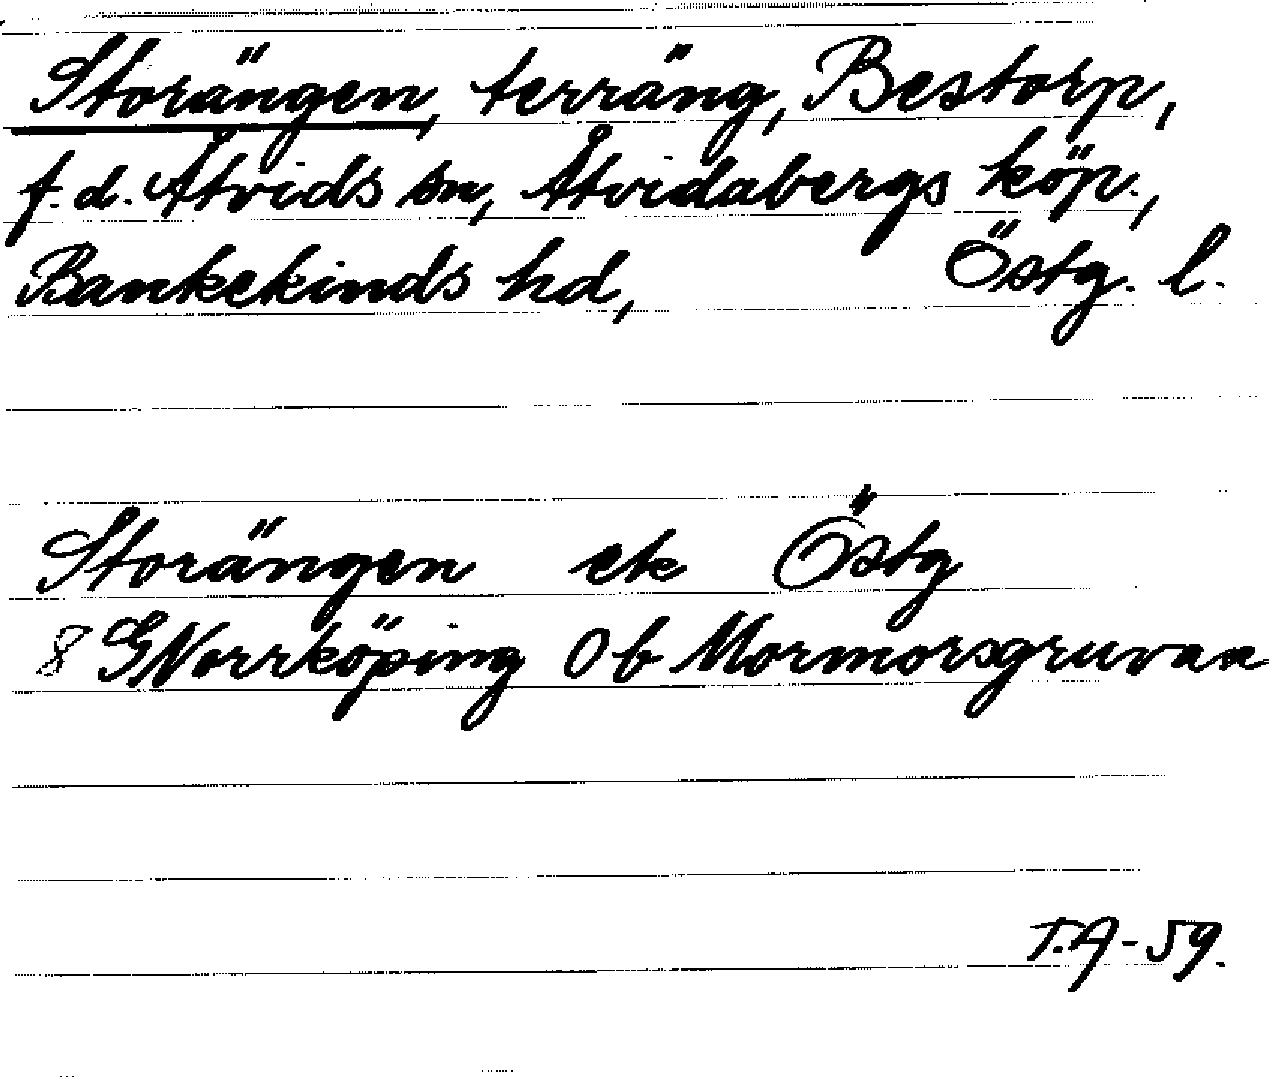 Storängen, terräng, Bestorp,
f.d. Åtvids sn, Åtvidabergs köp.,
Bankekinds hd, Östg. l.
Storängen ek Östg
8 G Norrköping 0 b Mormorsgruvan
T.A-59.